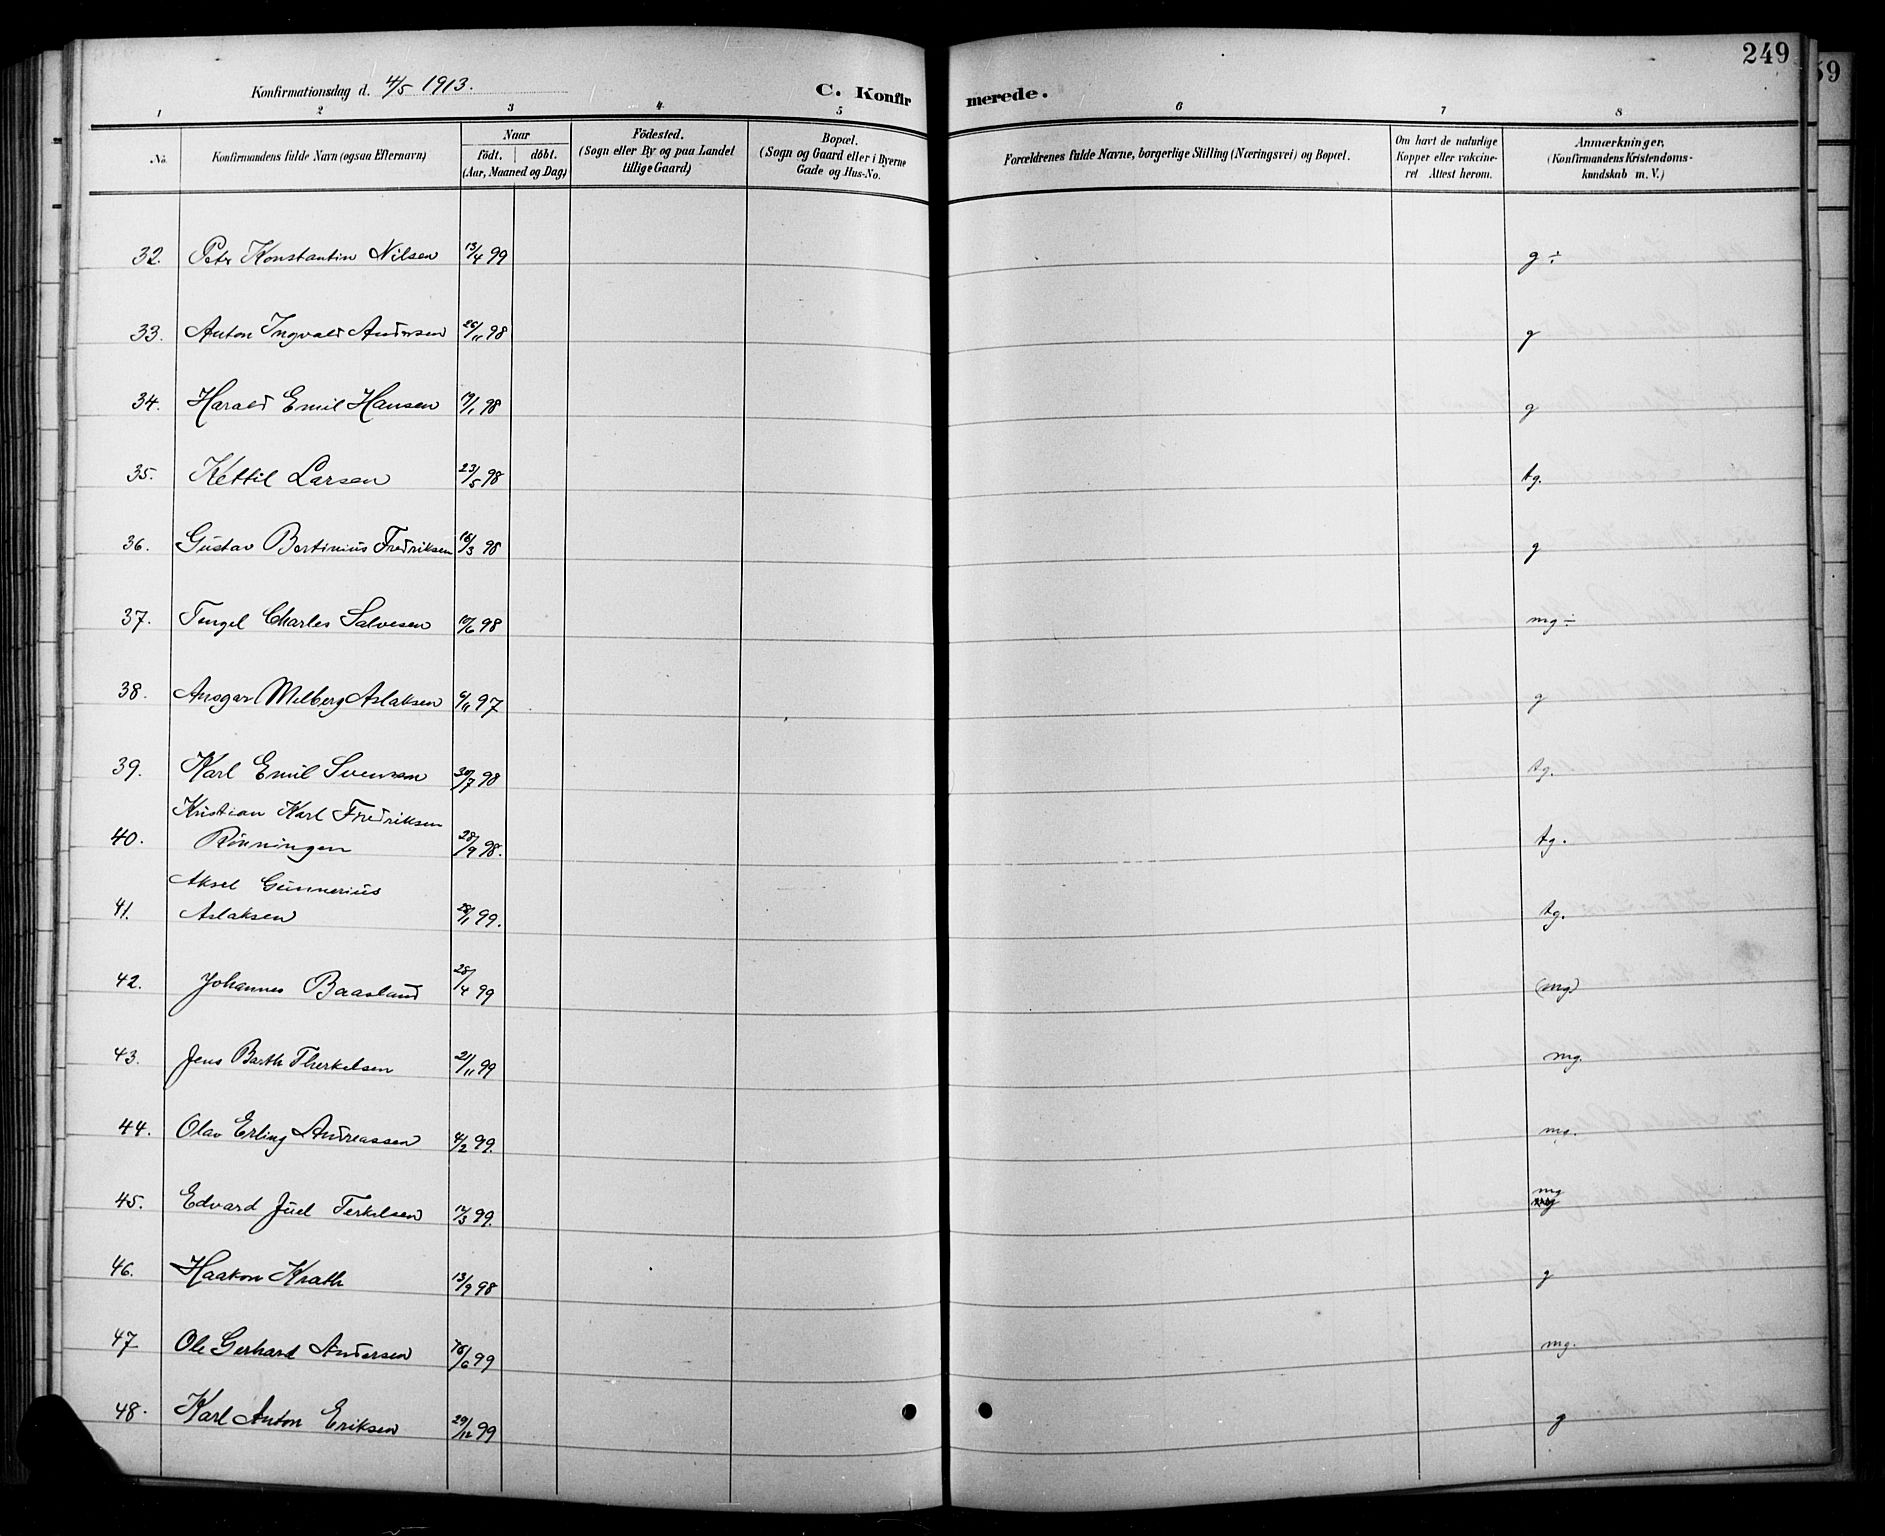 249
59
Konfirmationsdag d. 4/5 1913.
C. Konfirmerede.
1 2 3 4 5 6 7 8
No.
Konfirmandens fulde Navn (ogsaa Efternavn)
Naar
födt. döbt.
(Aar, Maaned og Dag)
Födested.
(Sogn eller By og paa Landet
tillige Gaard)
Bopæl.
(Sogn og Gaard eller i Byerne
Gade og Hus-No.
Forældrenes fulde Navne, borgerlige Stilling (Næringsvei) og Bopæl.
Om havt de naturlige
Kopper eller vakcine-
ret Attest herom.
Anmærkninger,
(Konfirmandens Kristendoms-
kundskab m. V.)
32. Peter Konstantin Nilsen 13/4 99 g ÷
33. Anton Ingvald Andersen 26/11 98 g
34. Harald Emil Hansen 98 g
35. Kettil Larsen 23/5 98 tg.
36. Gustav Bertinius Fredriksen 16/3 98 g
37. Tengel Charles Salvesen 98 mg ÷
38. Ansgar Milberg Aslaksen 6/11 97 g
39. Karl Emil Svensen 30/7 98 tg.
Kristian Karl Fredriksen
40. Rönningen 28/9 98. tg.
Aksel Gunnerius
41. Aslaksen 28/1 99. tg.
42. Johannes Baasland 28/4 99 (mg)
43. Jens Barth Therkelsen 21/11 99 mg.
44. Olav Erling Andreassen 4/2 99. mg.
mg
45. Edvard Juel Terkelsen 99.
46. Haakon Krath 13/9 98 g
47 Ole Gerhard Andersen 16/6 99 mg.
48. Karl Anton Eriksen 29/12 99 g